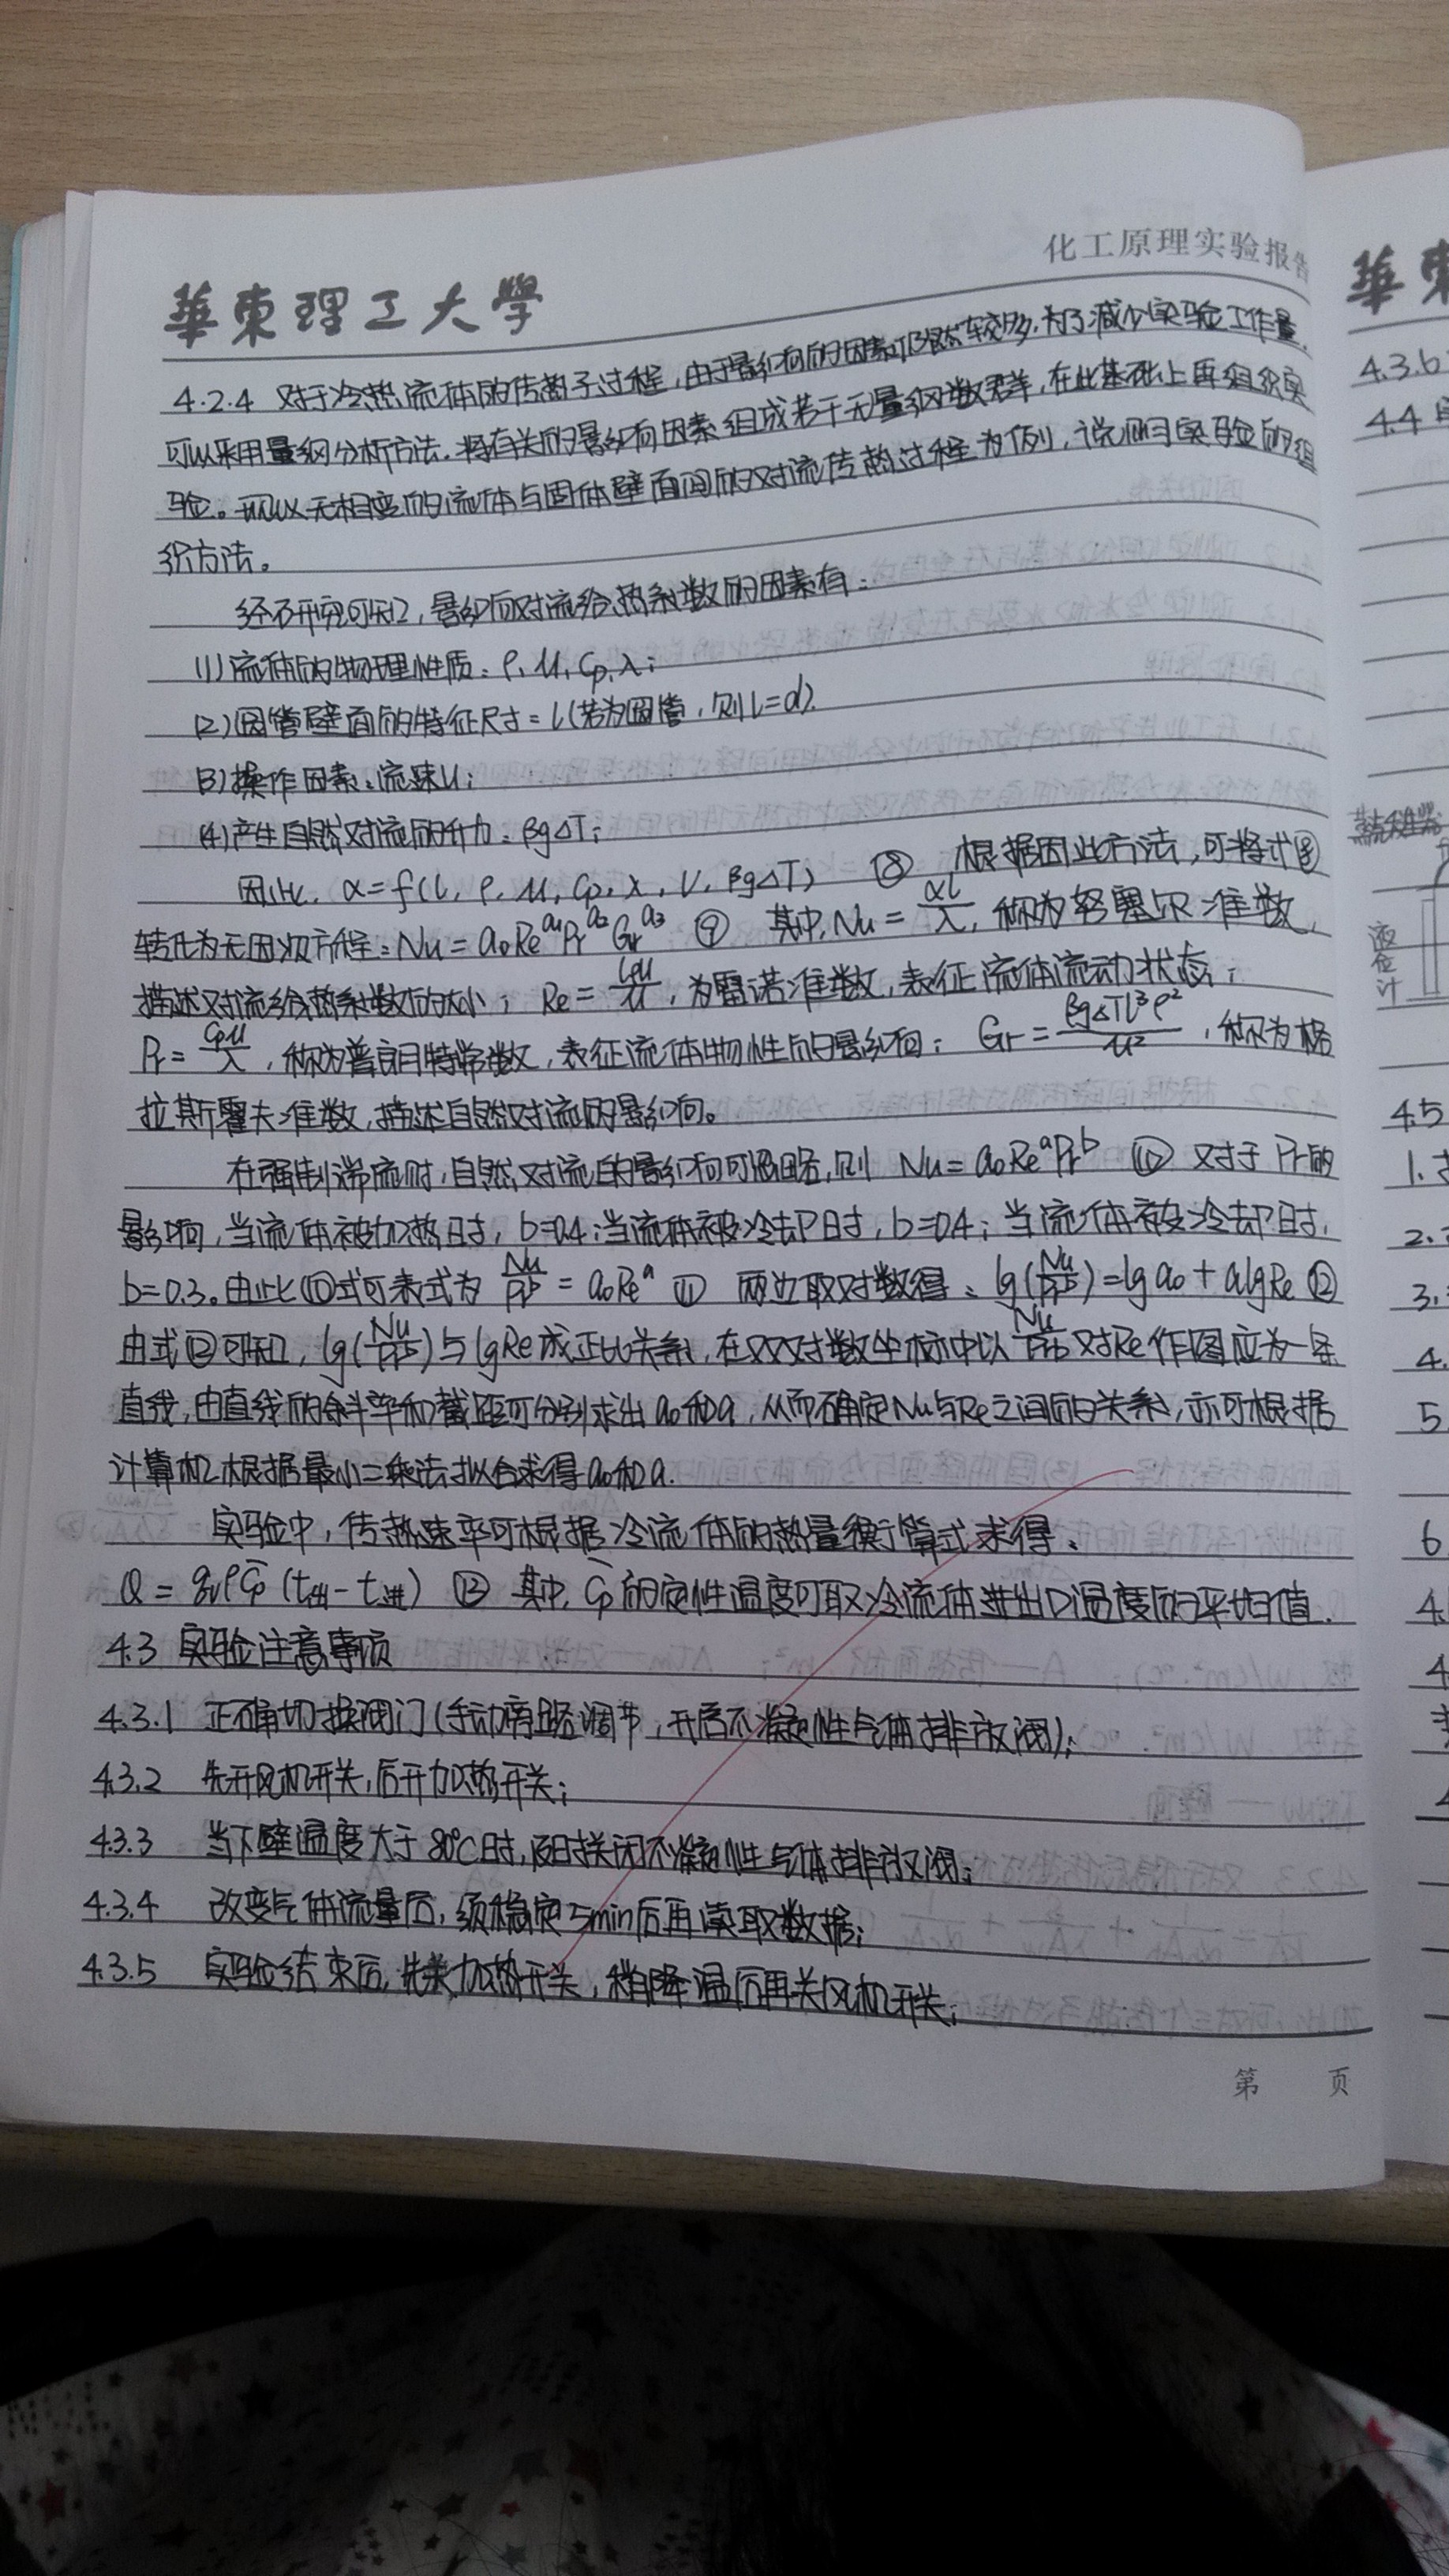 化工原理实验报告
華東理工大學
4.2.4 对于冷热流体的传热子过程,由于影响的因素仍然较多.为了减少实验工作量,
可以采用量纲分析方法.将有关的影响因素组成若干无量纲数群,在此基础上再组织实
验。现以无相变的流体与固体壁面间的对流传热过程为例,说明实验的组
织方法。
经研究可知,影响对流给热系数的因素有:
(1)流体的物理性质:ρ,μ,Cp,λ;
(2)圆管壁面的特征尺寸:l(若为圆管,则l=d).
(3)操作因素:流速u;
(4)产生自然对流的升力:βgΔT;
因此, α=f(l, ρ, μ, Cp, λ, u, βgΔT) ⑧ 根据因此方法,可将式⑧
转化为无因次方程:Nu=a₀Re^a₁Pr^a₂Gr^a₃ ⑨ 其中,Nu=αl/λ,称为努塞尔准数,
描述对流给热系数的大小; Re=lρu/μ,为雷诺准数,表征流体流动状态;
Pr=Cpμ/λ,称为普朗特常数,表征流体物性的影响; Gr=βgΔTl³ρ²/μ²,称为格
拉斯霍夫准数,描述自然对流的影响。
在强制湍流时,自然对流的影响可忽略,则 Nu=a₀Re^aPr^b ⑩ 对于Pr的
影响,当流体被加热时,b=0.4;当流体被冷却时,b=0.4;当流体被冷却时,
b=0.3。由此⑩式可表式为 Nu/Pr^b=a₀Re^a ⑪ 两边取对数得:lg(Nu/Pr^b)=lga₀+algRe ⑫
由式⑫可知,lg(Nu/Pr^b)与lgRe成正比关系,在双对数坐标中以Nu/Pr^b对Re作图应为一条
直线,由直线的斜率和截距可分别求出a₀和a,从而确定Nu与Re之间的关系,亦可根据
计算机根据最小二乘法拟合求得a₀和a.
实验中,传热速率可根据冷流体的热量衡算式求得:
Q=qvρC̄p(t出-t进) ⑬ 其中,C̄p的定性温度可取冷流体进出口温度的平均值.
4.3 实验注意事项
4.3.1 正确切换阀门(手动旁路调节,开启不凝性气体排放阀);
4.3.2 先开风机开关,后开加热开关;
4.3.3 当下壁温度大于80℃时,及时关闭不凝性气体排放阀;
4.3.4 改变气体流量后,须稳定5min后再读取数据;
4.3.5 实验结束后,先关加热开关,稍降温后再关风机开关;
第 页
華東
4.3.6
4.4
液位计
4.5
1.
2.
3.
4.
5
6